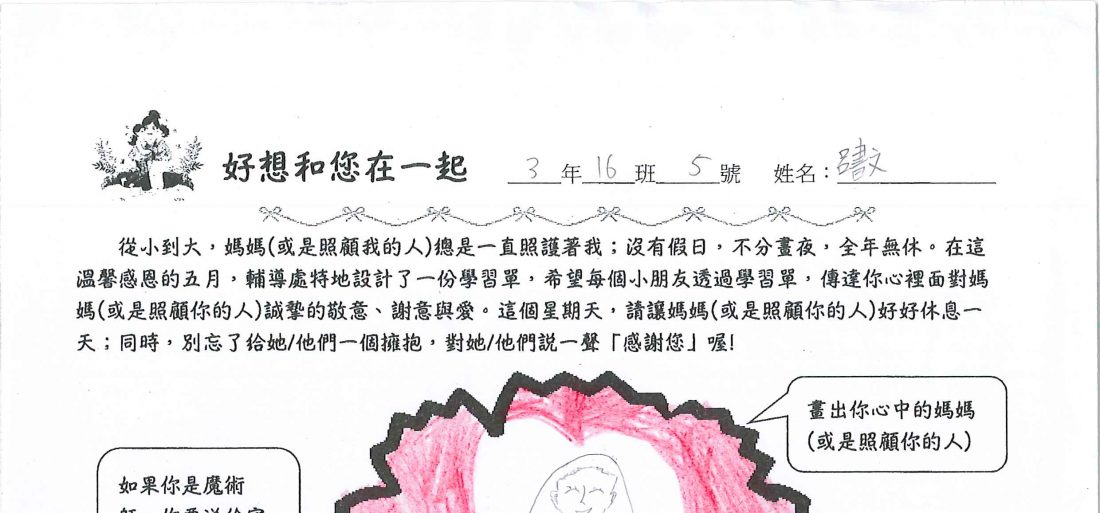 好想和您在一起 3年16班5號 姓名：呂書文
從小到大，媽媽(或是照顧我的人)總是一直照護著我；沒有假日，不分晝夜，全年無休。在這
溫馨感恩的五月，輔導處特地設計了一份學習單，希望每個小朋友透過學習單，傳達你心裡面對媽
媽(或是照顧你的人)誠摯的敬意、謝意與愛。這個星期天，請讓媽媽(或是照顧你的人)好好休息一
天；同時，別忘了給她/他們一個擁抱，對她/他們說一聲「感謝您」喔!
畫出你心中的媽媽
(或是照顧你的人)
如果你是魔術